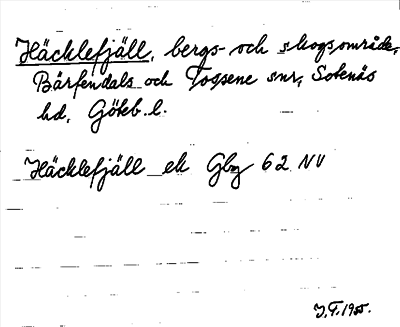 Häcklefjäll, bergs- och skogsområde,
Bärfendals och Tossene snr, Sotenäs
hd, Göteb. l.
Häcklefjäll ek Gbg 62 NV
J.F. 1955.